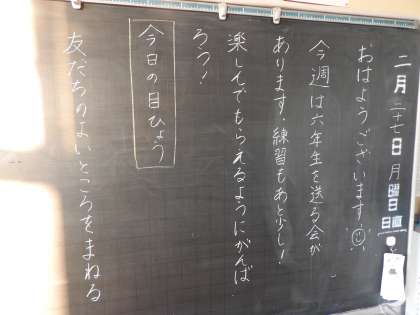 二月二十七日月曜日
日直
おはようございます
今週は六年生を送る会が
あります。練習もあと少し!
楽しんでもらえるようにがんば
ろう!
今日の目ひょう
友だちのよいところをまねる